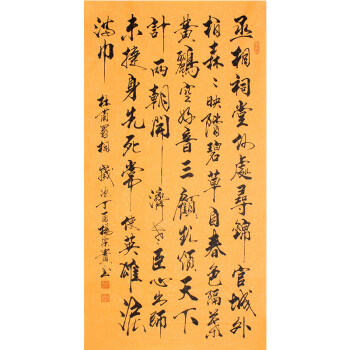 丞相祠堂何處尋錦官城外
柏森々映階碧草自春色隔葉
黃鸝空好音三顧頻煩天下
計兩朝開濟老臣心出師
未捷身先死常使英雄淚
滿巾
杜甫蜀相 歲次丁酉